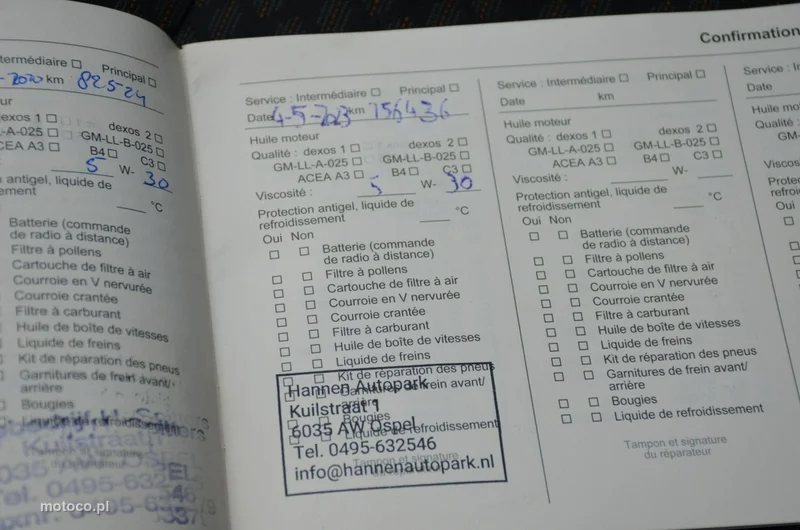 Confirmation
termédiaire ☐ Principal ☐
-2020 km 82524
dexos 1 ☐ dexos 2 ☐
LL-A-025 ☐ GM-LL-B-025 ☐
ACEA A3 ☐ B4 ☐ C3 ☐
5 W- 30
antigel, liquide de
°C
Batterie (commande
de radio à distance)
Filtre à pollens
Cartouche de filtre à air
Courroie en V nervurée
Courroie crantée
Filtre à carburant
Huile de boîte de vitesses
Liquide de freins
Kit de réparation des pneus
Garnitures de frein avant/
arrière
Bougies
Liquide de refroidissement
Service : Intermédiaire ☐ Principal ☐
Date 4-5-2023 km 156436
Huile moteur
Qualité : dexos 1 ☐ dexos 2 ☐
GM-LL-A-025 ☐ GM-LL-B-025 ☐
ACEA A3 ☐ B4 ☐ C3 ☐
Viscosité : 5 W- 30
Protection antigel, liquide de
refroidissement °C
Oui Non
☐ ☐ Batterie (commande
de radio à distance)
☐ ☐ Filtre à pollens
☐ ☐ Cartouche de filtre à air
☐ ☐ Courroie en V nervurée
☐ ☐ Courroie crantée
☐ ☐ Filtre à carburant
☐ ☐ Huile de boîte de vitesses
☐ ☐ Liquide de freins
☐ ☐ Kit de réparation des pneus
☐ ☐ Garnitures de frein avant/
arrière
☐ ☐ Bougies
☐ ☐ Liquide de refroidissement
Tampon et signature
du réparateur
Hannen Autopark
Kuilstraat 1
6035 AW Ospel
Tel. 0495-632546
info@hannenautopark.nl
Service : Intermédiaire ☐ Principal ☐
Date km
Huile moteur
Qualité : dexos 1 ☐ dexos 2 ☐
GM-LL-A-025 ☐ GM-LL-B-025 ☐
ACEA A3 ☐ B4 ☐ C3 ☐
Viscosité : W-
Protection antigel, liquide de
refroidissement °C
Oui Non
☐ ☐ Batterie (commande
de radio à distance)
☐ ☐ Filtre à pollens
☐ ☐ Cartouche de filtre à air
☐ ☐ Courroie en V nervurée
☐ ☐ Courroie crantée
☐ ☐ Filtre à carburant
☐ ☐ Huile de boîte de vitesses
☐ ☐ Liquide de freins
☐ ☐ Kit de réparation des pneus
☐ ☐ Garnitures de frein avant/
arrière
☐ ☐ Bougies
☐ ☐ Liquide de refroidissement
Tampon et signature
du réparateur
Service : In
Date
Huile mo
Qualité :
Viscosi
Oui
motoco.pl